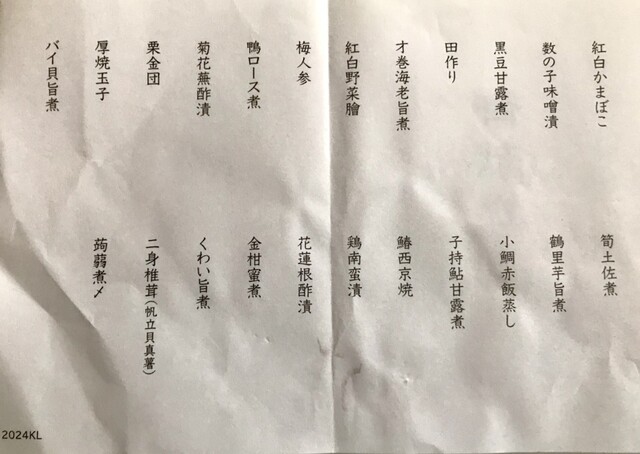 紅白かまぼこ
数の子味噌漬
黒豆甘露煮
田作り
才巻海老旨煮
紅白野菜膾
梅人参
鴨ロース煮
菊花蕪酢漬
栗金団
厚焼玉子
バイ貝旨煮
筍土佐煮
鶴里芋旨煮
小鯛赤飯蒸し
子持鮎甘露煮
鰆西京焼
鶏南蛮漬
花蓮根酢漬
金柑蜜煮
くわい旨煮
二身椎茸(帆立貝真薯)
蒟蒻煮〆
2024KL